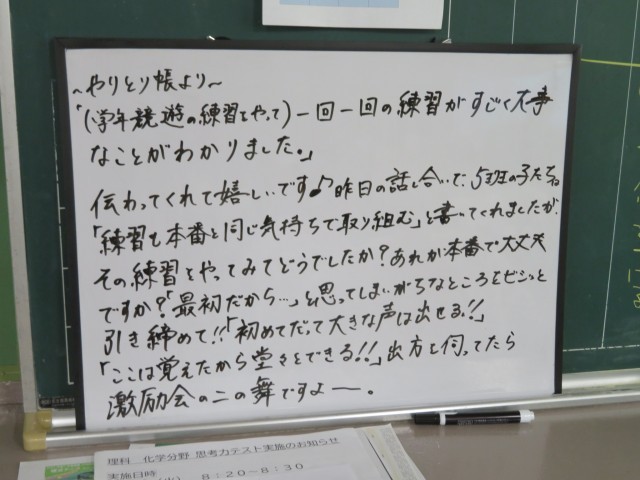 ~やりとり帳より~
「(学年競遊の練習をやって)一回一回の練習がすごく大事
なことがわかりました。」
伝わってくれて嬉しいです♪昨日の話し合いで、5班の子たちが
「練習も本番と同じ気持ちで取り組む」と書いてくれましたが、
その練習をやってみてどうでしたか?あれが本番で大丈夫
ですか?「最初だから…」と思ってしまいがちなところをビシッと
引き締めて!!「初めてだって大きな声は出せる!!」
「ここは覚えたから堂々とできる!!」出方を伺ってたら
激励会の二の舞ですよー。
理科 化学分野 思考力テスト実施のお知らせ
実施日時 8:20~8:30